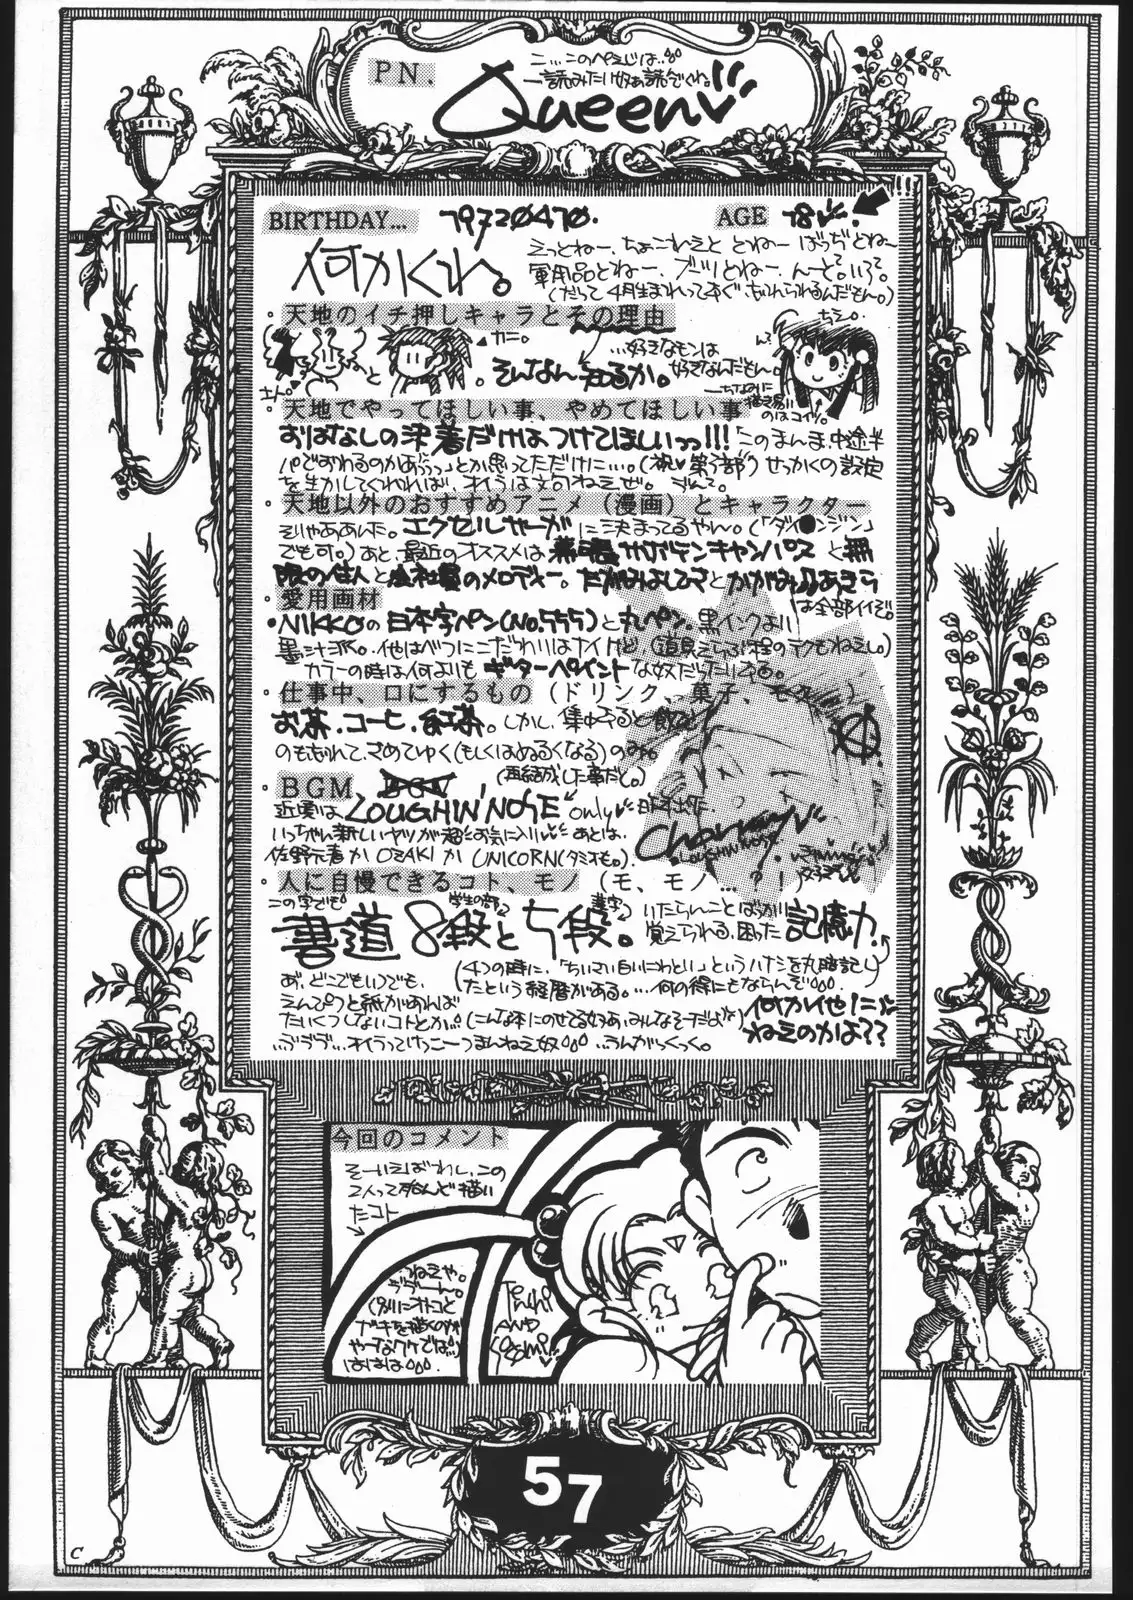 PN.
こ…このページは…
読みたい奴ぁ読んでくれ。
Queen
BIRTHDAY… 19720410.
AGE 18
何かくれ。
えっとねー、ちょこれえと とねー ばっぢとねー
軍用品とねー、ブーツとねー、んーと。いろいろ
(だって4月生まれってすぐ、忘れられるんだもん。)
・天地のイチ押しキャラとその理由
カニ。
さん。 と 。そんなん知るか。
…好きなモンは
好きなんだもん。
チシ。
ちなみに
描き易い
のはコイツ。
・天地でやってほしい事、やめてほしい事
おはなしの決着だけはつけてほしいっっ!!!「このまんま中途半
パでおわるのかあぁっっ」とか思ってただけに…。(祝♥第2部)せっかくの設定
を生かしてくれれば、オイラは文句ねえぜ。
・天地以外のおすすめアニメ(漫画)とキャラクター
そりゃああんた。エクゼルサーガに決まってるやん。(「ダイ●ンジン」
でも可。)あと、最近のオススメは サボテンキャンパスと無
限の住人と会社員のメロディー。だれなまはしてさとかがみあきら
は全部イイぞ。
・愛用画材
・NIKKOの日本字ペン(No.555)と丸ペン。黒インクより
墨汁派。他はべつにこだわりはナイけど、(道具えらぶ程のテクもねえし。)
カラーの時は何よりもギターペイントな奴だったりする。
・仕事中、口にするもの(ドリンク、菓子、モク…)
お茶、コーヒ、紅茶。しかし、集中すると飲む
のも忘れて、さめてゆく(もしくはぬるくなる)のみ。
・BGM
(再結成した事だと。)
近頃は、LOUGHIN'NOSE only
いっちゃん新しいヤツが超お気に入り あとは、
佐野元春か OZAKI か UNICORN(タミオも。)
Charmy
LOUGHIN'NOSE
・人に自慢できるコト、モノ(モ、モノ…?!)
この字でも
書道 8段と5段。
学生の部
漢字
いたらんことばかり
覚えられる、困った記憶力
(4つの時に、「ちいさい白いにわとり」というハナシを丸暗記し
たという経歴がある。…何の得にもならんぞ)
あ、どこでもいつでも、
えんぴつと紙があれば
たいくつしないコトとか…(こんな本にのせてる奴ぁ、みんなそーだよな)
何か他に
ねえのかよ??
オイラってけっこーつまんねえ奴 うんがっくっく。
今回のコメント
そーいえばわし、この
2人って殆んど描い
たコト
ねえや。
(別にオトコと
ガキを描くのが
やーなワケではな
ははは
Tenchi
AND
Sasami
57
C